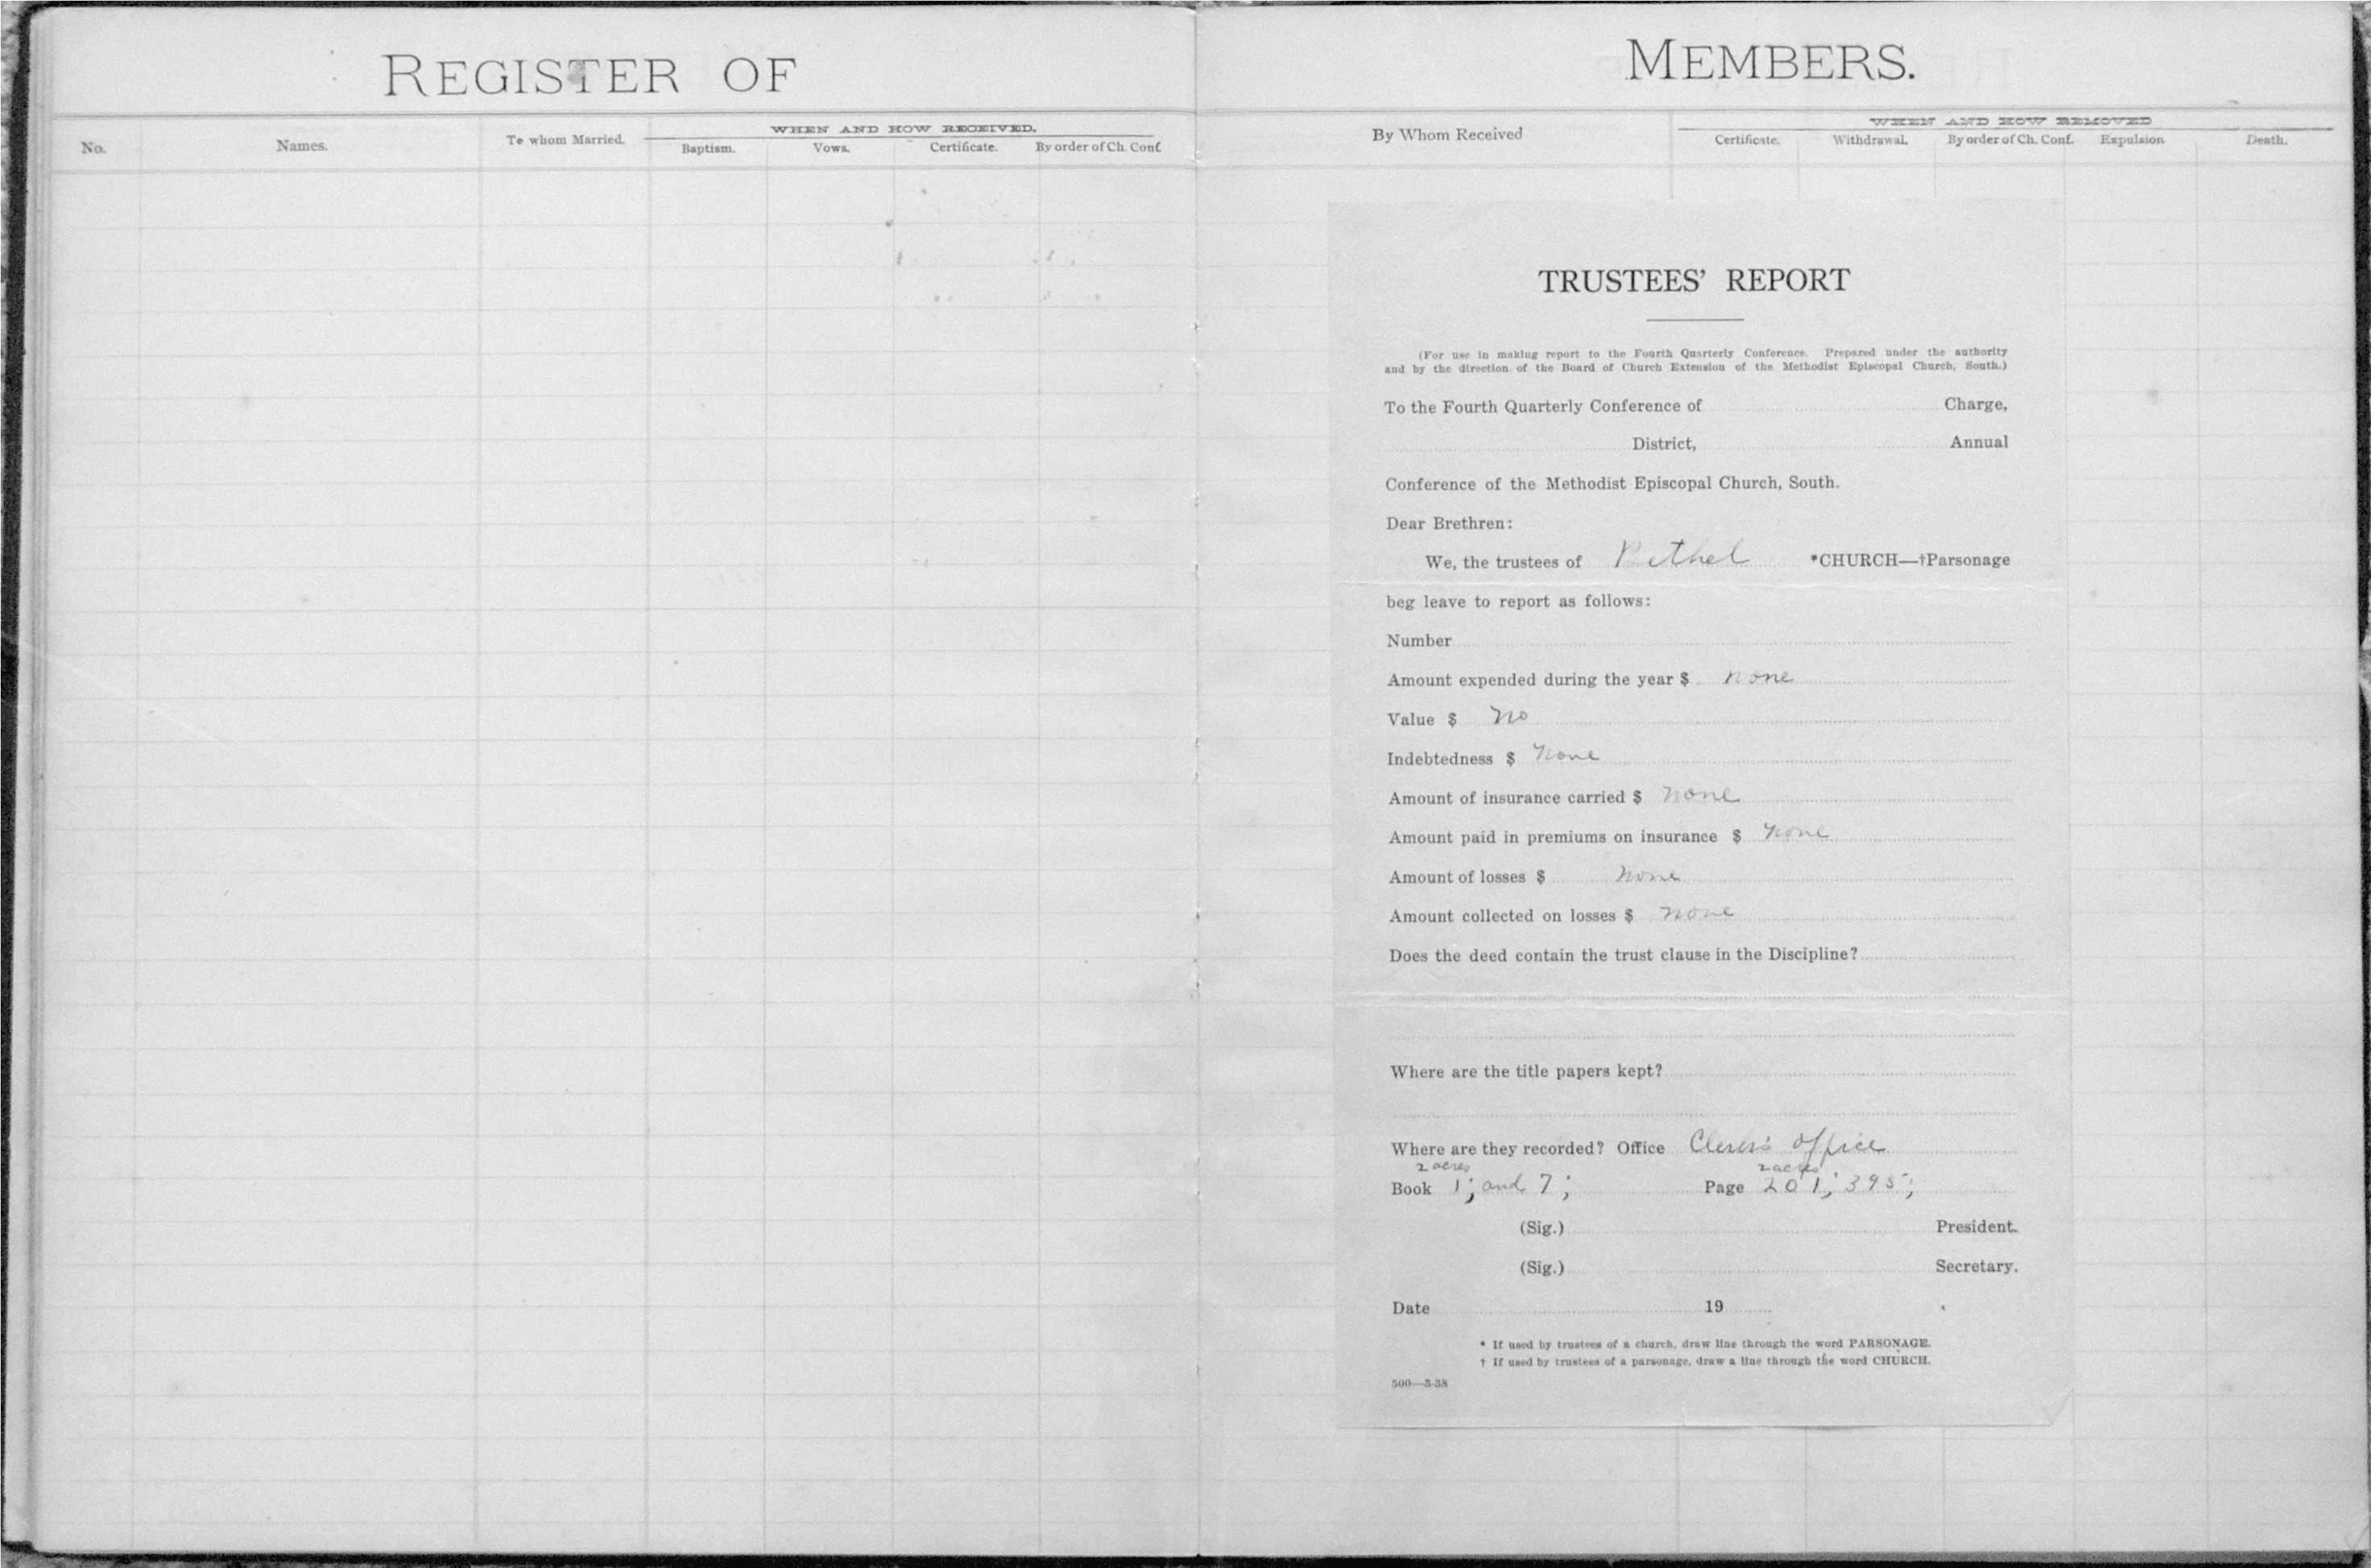 REGISTER OF
No. Names. To whom Married. WHEN AND HOW RECEIVED.
Baptism. Vows. Certificate. By order of Ch. Conf.
MEMBERS.
By Whom Received WHEN AND HOW REMOVED
Certificate. Withdrawal. By order of Ch. Conf. Expulsion Death.
TRUSTEES' REPORT
(For use in making report to the Fourth Quarterly Conference. Prepared under the authority
and by the direction of the Board of Church Extension of the Methodist Episcopal Church, South.)
To the Fourth Quarterly Conference of Charge,
District, Annual
Conference of the Methodist Episcopal Church, South.
Dear Brethren:
We, the trustees of Bethel *CHURCH—†Parsonage
beg leave to report as follows:
Number
Amount expended during the year $ none
Value $ no
Indebtedness $ none
Amount of insurance carried $ none
Amount paid in premiums on insurance $ none
Amount of losses $ none
Amount collected on losses $ none
Does the deed contain the trust clause in the Discipline?
Where are the title papers kept?
Where are they recorded? Office Clerk's office
2 acres 2 acres
Book 1; and 7; Page 201; 395;
(Sig.) President.
(Sig.) Secretary.
Date 19
* If used by trustees of a church, draw line through the word PARSONAGE.
† If used by trustees of a parsonage, draw a line through the word CHURCH.
500—3-38